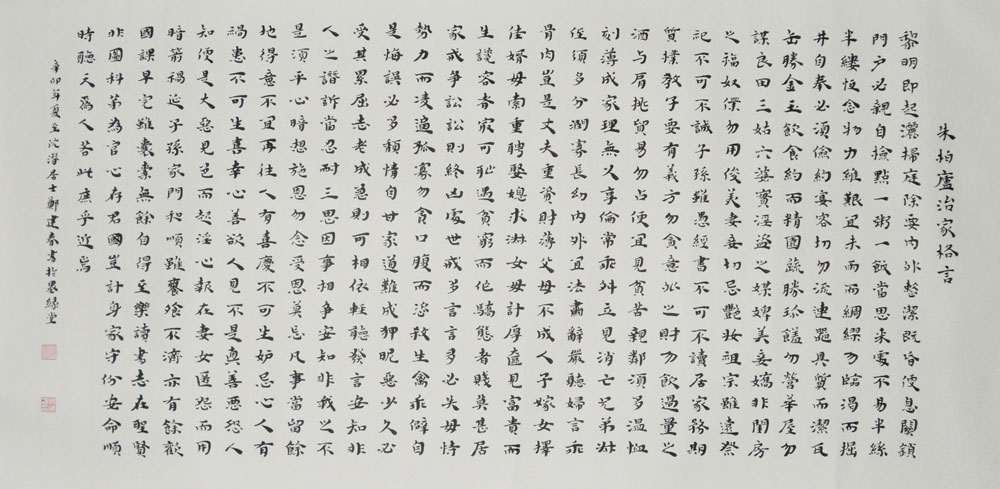 朱柏廬治家格言
黎明即起灑掃庭除要內外整潔既昏便息關鎖
門戶必親自檢點一粥一飯當思來處不易半絲
半縷恆念物力維艱宜未雨而綢繆勿臨渴而掘
井自奉必須儉約宴客切勿流連器具質而潔瓦
缶勝金玉飲食約而精園蔬勝珍饈勿營華屋勿
謀良田三姑六婆實淫盜之媒婢美妾嬌非閨房
之福奴僕勿用俊美妻妾切忌艷妝祖宗雖遠祭
祀不可不誠子孫雖愚經書不可不讀居家務期
質樸教子要有義方勿貪意外之財勿飲過量之
酒與肩挑貿易勿占便宜見貧苦親鄰須多溫恤
刻薄成家理無久享倫常乖舛立見消亡兄弟叔
侄須多分潤寡長幼內外宜法肅辭嚴聽婦言乖
骨肉豈是丈夫重資財薄父母不成人子嫁女擇
佳婿毋索重聘娶媳求淑女毋計厚奩見富貴而
生諂容者最可恥遇貧窮而作驕態者賤莫甚居
家戒爭訟訟則終凶處世戒多言言多必失毋恃
勢力而凌逼孤寡勿貪口腹而恣殺生禽乖僻自
是悔誤必多頹惰自甘家道難成狎昵惡少久必
受其累屈志老成急則可相依輕聽發言安知非
人之譖訴當忍耐三思因事相爭安知非我之不
是須平心暗想施恩勿念受恩莫忘凡事當留餘
地得意不宜再往人有喜慶不可生妒忌心人有
禍患不可生喜幸心善欲人見不是真善惡恐人
知便是大惡見色而起淫心報在妻女匿怨而用
暗箭禍延子孫家門和順雖饔飧不濟亦有餘歡
國課早完雖囊橐無餘自得至樂讀書志在聖賢
非圖科第為官心存君國豈計身家守份安命順
時聽天為人若此庶乎近焉
辛卯年夏至沈潛居士鄭建春書於墨緣堂